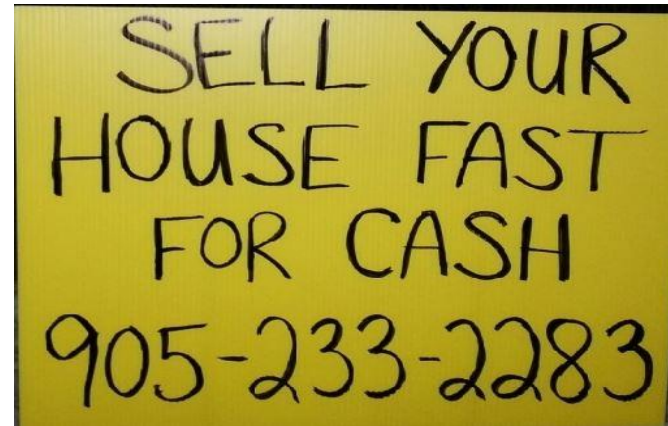 SELL YOUR
HOUSE FAST
FOR CASH
905-233-2283